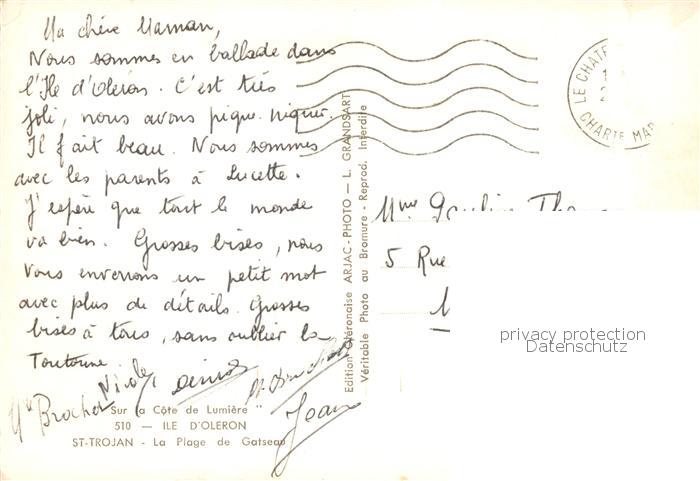 Ma chère Maman,
Nous sommes en ballade dans
l'Ile d'Oléron. C'est très
joli, nous avons pique-niqué.
Il fait beau. Nous sommes
avec les parents à Lucette.
J'espère que tout le monde
va bien. Grosses bises, nous
vous enverrons un petit mot
avec plus de détails. Grosses
bises à tous, sans oublier la
Toutoune
Nicole
Mme Brochot
Jean
Sur la Côte de Lumière "
510 — ILE D'OLERON
ST-TROJAN - La Plage de Gatseau
Edition Oléronaise ARJAC-PHOTO — L. GRANDSART
Véritable Photo au Bromure - Reprod. Interdite
LE CHATE
CHARTE MAR
Mme
5 Rue
privacy protection
Datenschutz